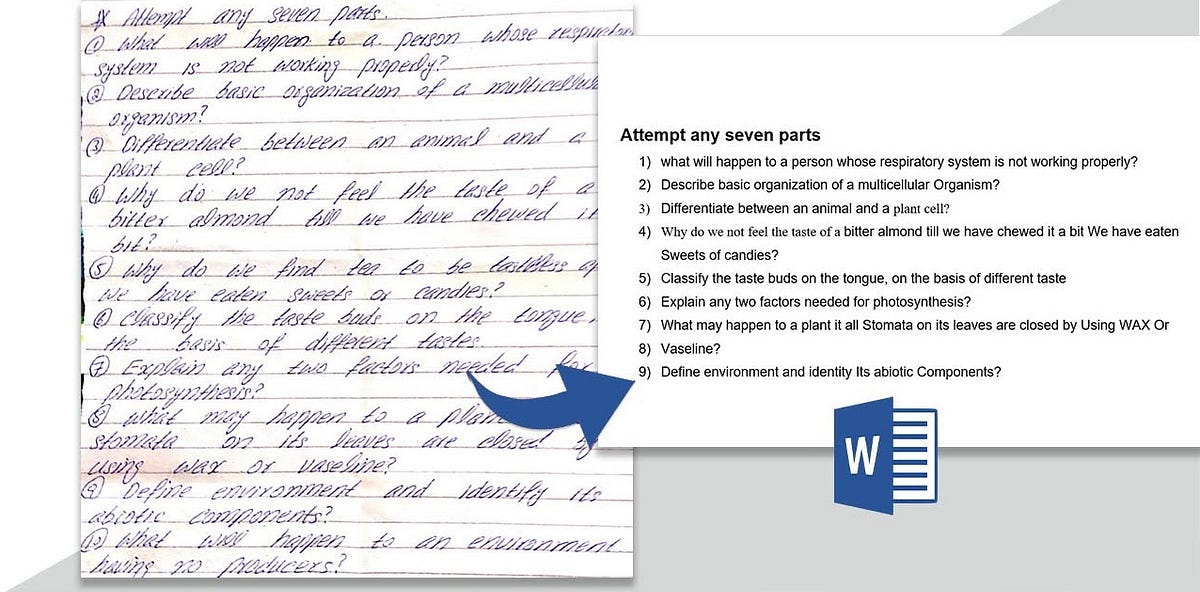 Attempt any seven parts.
① What will happen to a person whose
system is not working properly?
② Describe basic organization of a
organism?
③ Differentiate between an animal and a
plant cell?
④ Why do we not feel the taste of a
bitter almond till we have chewed it
bit?
⑤ Why do we find tea to be tasteless
we have eaten sweets or candies?
⑥ Classify the taste buds on the tongue,
the basis of different tastes.
⑦ Explain any two factors needed for
photosynthesis?
⑧ What may happen to a
stomata on its leaves are closed by
using wax or vaseline?
⑨ Define environment and identify its
abiotic components?
⑩ What will happen to an environment
having no producers?
Attempt any seven parts
1) what will happen to a person whose respiratory system is not working properly?
2) Describe basic organization of a multicellular Organism?
3) Differentiate between an animal and a plant cell?
4) Why do we not feel the taste of a bitter almond till we have chewed it a bit We have eaten
Sweets of candies?
5) Classify the taste buds on the tongue, on the basis of different taste
6) Explain any two factors needed for photosynthesis?
7) What may happen to a plant it all Stomata on its leaves are closed by Using WAX Or
8) Vaseline?
9) Define environment and identity Its abiotic Components?
W